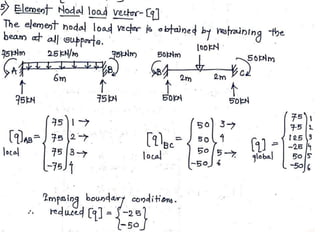 5) Element Nodal load vector-[q]
The element nodal load vector is obtained by restraining the
beam at all supports.
75kNm 25KN/m 75kNm 50KNm 100KN 50KNm
A B B C
6m 2m 2m
75KN 75KN 50KN 50KN
[q]AB = { 75 75 75 -75 } 1→ 2→ 3→ 4
local
[q]BC = { 50 50 50 -50 } 3→ 4 5→ 6
local
[q] = { 75 75 125 -25 50 -50 } 1 2 3 4 5 6
global
Imposing boundary conditions.
∴ reduced [q] = { -25 -50 }